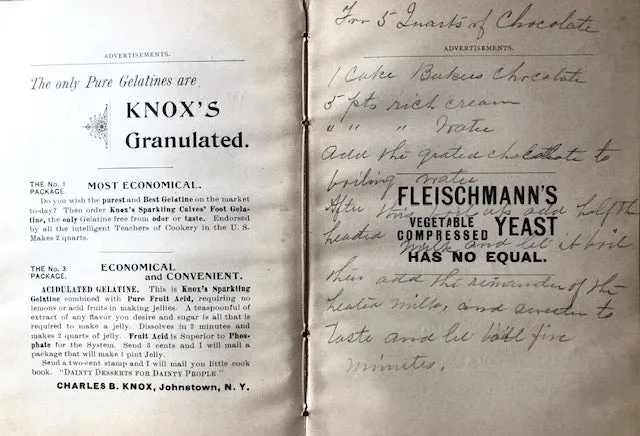 ADVERTISEMENTS.
The only Pure Gelatines are
KNOX'S
Granulated.
THE No. 1
PACKAGE.
MOST ECONOMICAL.
Do you wish the purest and Best Gelatine on the market
today? Then order Knox's Sparkling Calves' Foot Gela-
tine, the only Gelatine free from odor or taste. Endorsed
by all the intelligent Teachers of Cookery in the U. S.
Makes 2 quarts.
THE No. 3
PACKAGE.
ECONOMICAL
and CONVENIENT.
ACIDULATED GELATINE. This is Knox's Sparkling
Gelatine combined with Pure Fruit Acid, requiring no
lemons or acid fruits in making jellies. A teaspoonful of
extract of any flavor you desire and sugar is all that is
required to make a jelly. Dissolves in 2 minutes and
makes 2 quarts of jelly. Fruit Acid is Superior to Phos-
phate for the System. Send 3 cents and I will mail a
package that will make 1 pint Jelly.
Send a two-cent stamp and I will mail you little cook
book. "DAINTY DESSERTS FOR DAINTY PEOPLE."
CHARLES B. KNOX, Johnstown, N. Y.
For 5 Quarts of Chocolate
ADVERTISEMENTS.
1 Cake Bakers Chocolate
5 pts rich cream
" " " Water
Add the grated chocolate to
boiling water
FLEISCHMANN'S
After this boil up add half the
VEGETABLE
COMPRESSED YEAST
heated milk and let it boil
HAS NO EQUAL.
then add the remainder of the
heated milk, and sweeten to
taste and let boil five
minutes.